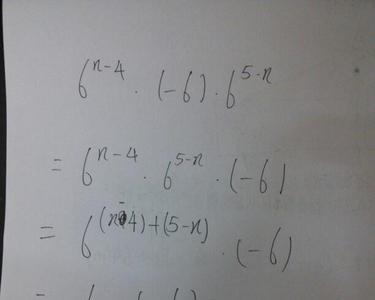 6^{n-4} · (-6) · 6^{5-n}
= 6^{n-4} · 6^{5-n} · (-6)
= 6^{(n-4)+(5-n)} · (-6)